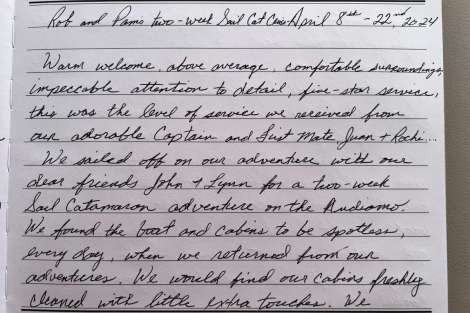 Rob and Pam's two-week Sail Cat Cruise April 8th - 22nd, 2024
Warm welcome, above average, comfortable surroundings,
impeccable attention to detail, five-star service,
this was the level of service we received from
our adorable Captain and First Mate, Juan + Rochi...
We sailed off on our adventure with our
dear friends John + Lynn for a two-week
Sail Catamaran adventure on the Audiamo.
We found the boat and cabins to be spotless,
every day, when we returned from our
adventures. We would find our cabins freshly
cleaned with little extra touches. We